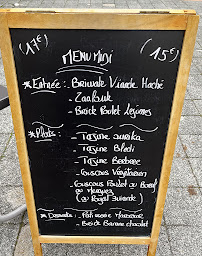 (17€) (15€)
MENU Midi
* Entrée : - Briouate Viande Haché
- Zaalouk
- Brick Poulet légumes
* Plats : - Tajine
- Tajine Bledi
- Tajine Berbere
- Couscous Végétarien
- Couscous Poulet ou Boeuf
ou Merguez
(ou Royal Suivante)
* Desserts : - Patisserie Marocaine
- Brick Banane chocolat